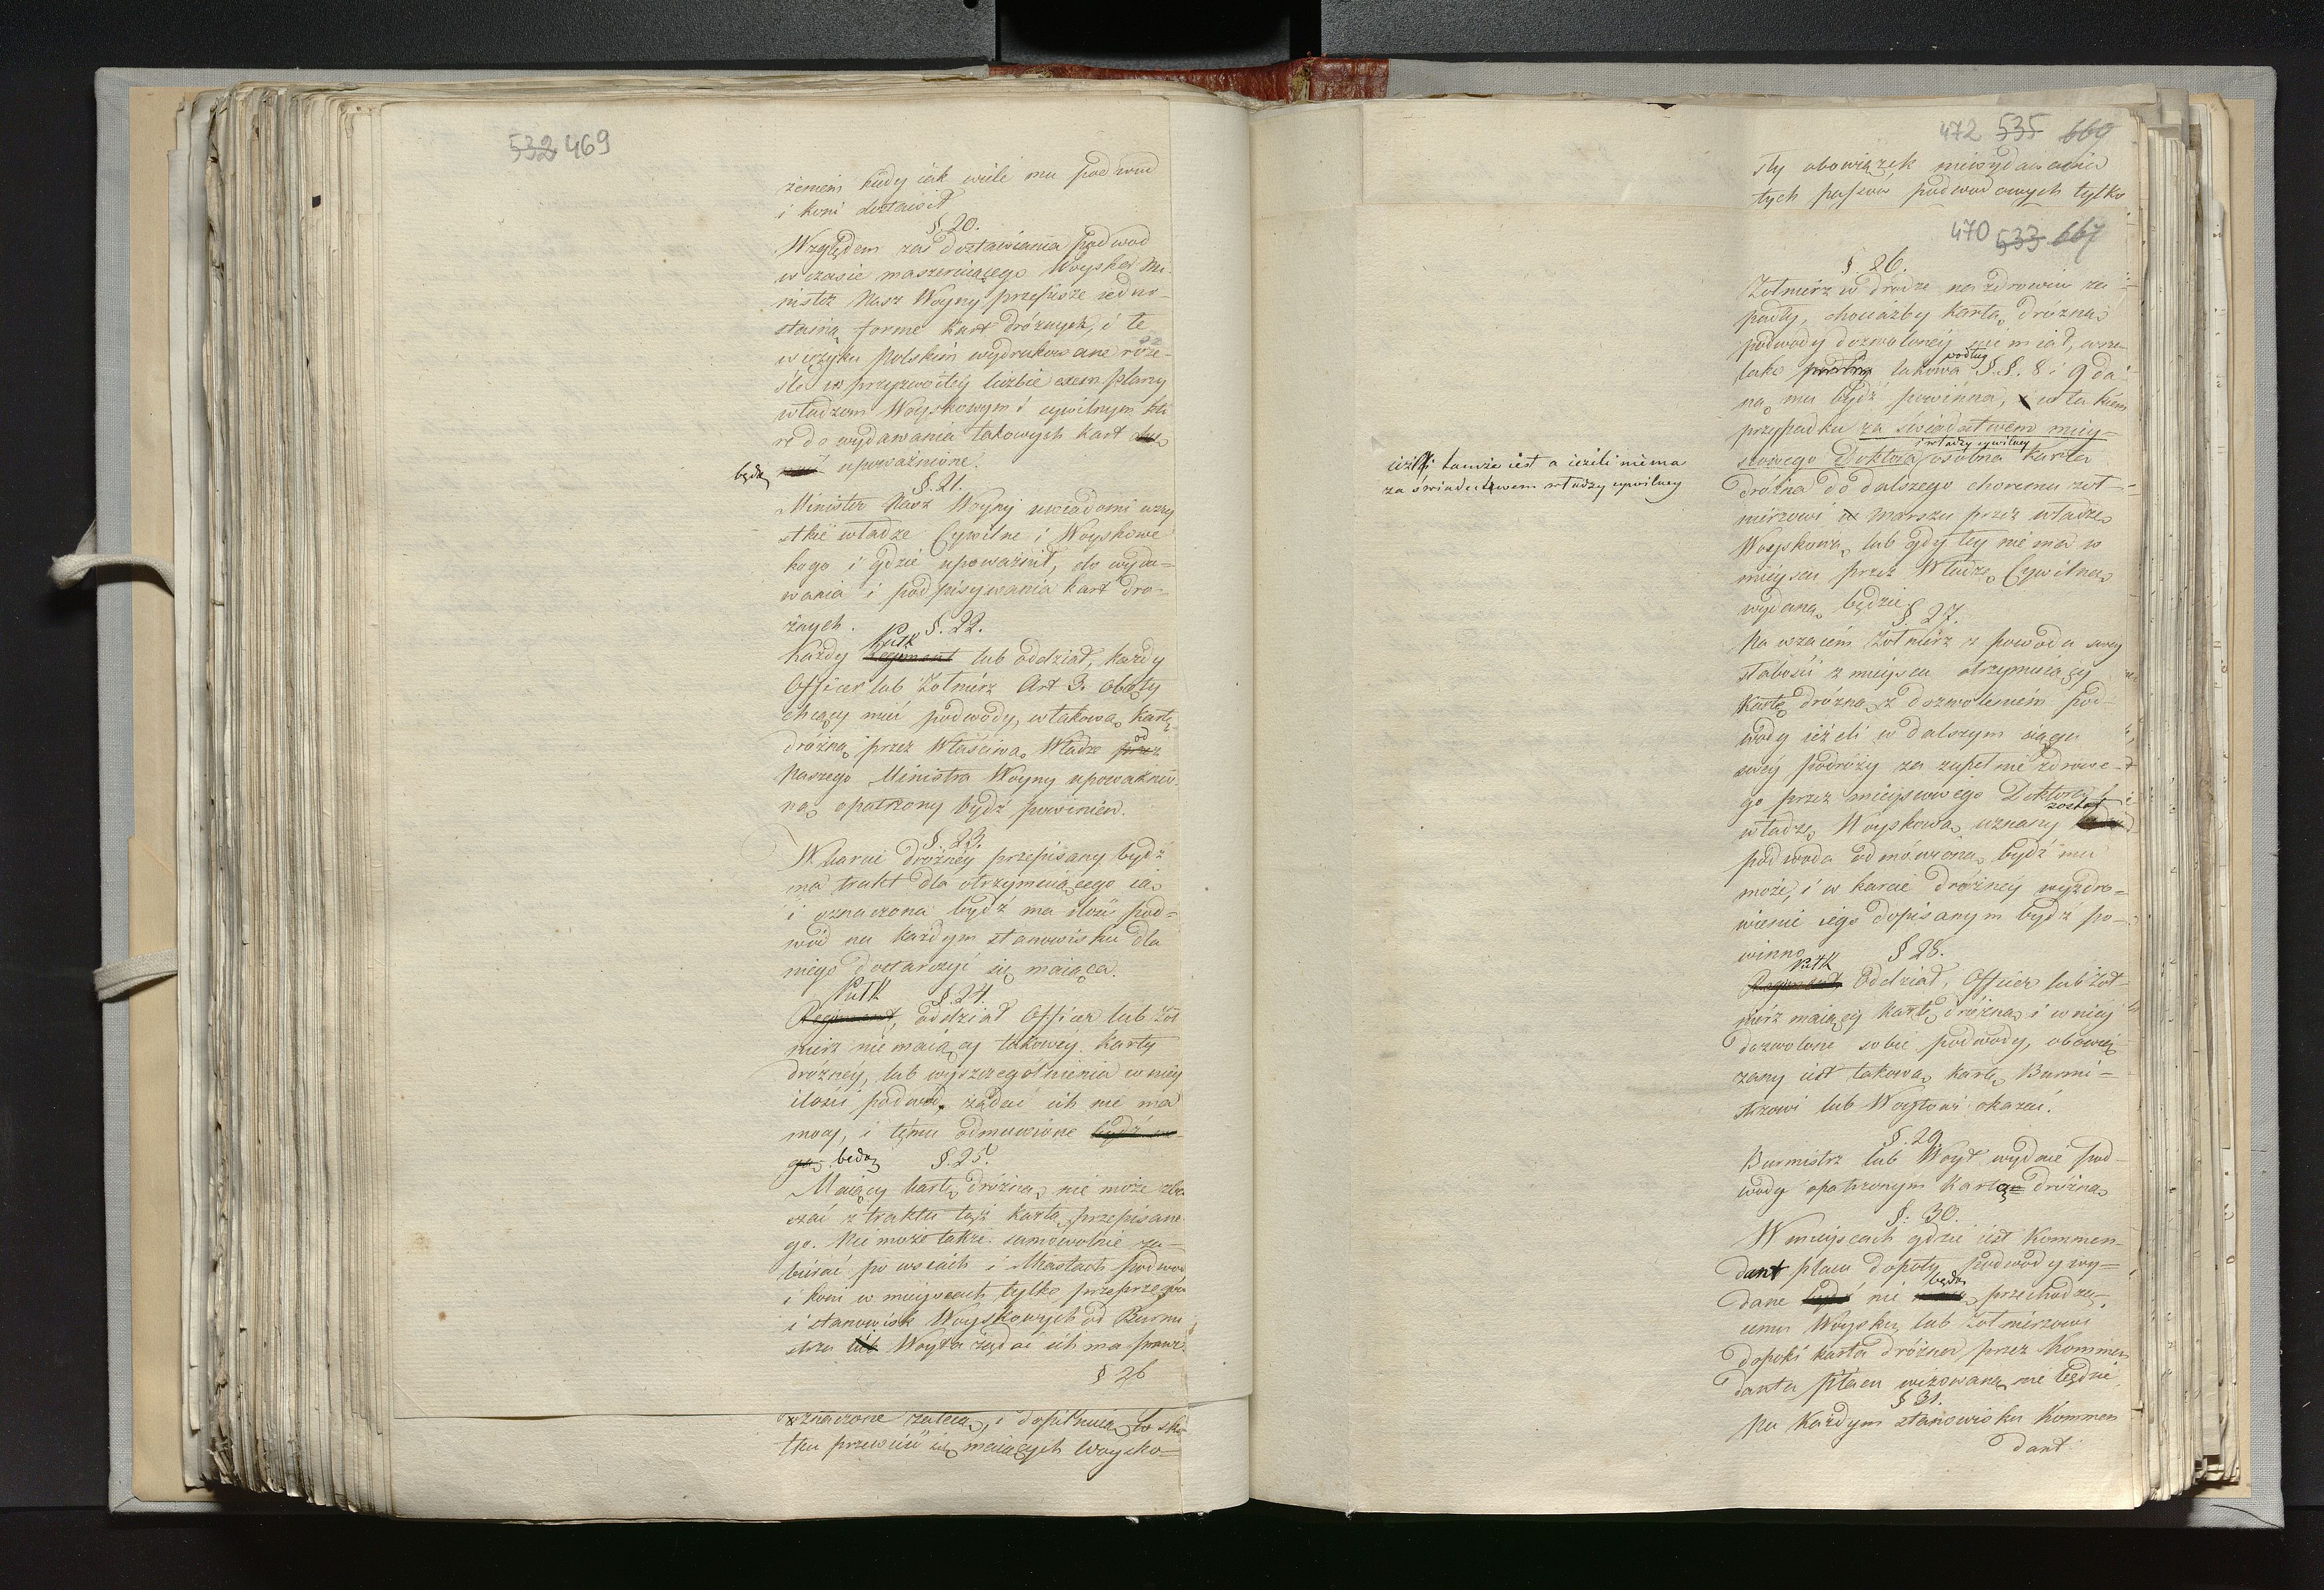 532 469
żeniem kiedy iak wiele mu podwod
i koni dostawił
§. 20.
Względem zaś dostawiania podwod
w czasie maszeruiącego Woyska Mi-
nister Nasz Woyny przepisze iedno-
stayną formę kart dróżnych, i te
w ięzyku Polskim wydrukowane roze-
śle w przyzwoitey liczbie exemplarzy
władzom Woyskowym i cywilnym któ
re do wydawania takowych kart
będą upoważnione.
§. 21.
Minister Nasz Woyny uwiadomi wszy
stkie władze Cywilne i Woyskowe
kogo i gdzie upoważnił, do wyda-
wania i podpisywania kart dro-
żnych.
§. 22.
Pułk
Każdy Regiment lub oddział, każdy
Officer lub Żołnierz Art 3. obięty
chcący mieć podwody, w takową kartę
dróżną przez Właściwą Władzę przez
od
Naszego Ministra Woyny upoważnio-
ną opatrzony bydź powinien.
§. 23.
W karcie dróżnéy przepisany bydź
ma trakt dla otrzymuiącego ią
i oznaczona bydź ma ilość pod-
wód na każdym stanowisku dla
niego dostarczyć się maiąca.
Pułk §. 24.
Regiment, oddział Officer lub Żoł
nierz nie maiący takowey karty
dróżney, lub wyszczególnienia w niey
ilości podwod, żądać ich nie ma
mocy, i temu odmuwione bydź mo-
gą. będą §. 25.
Maiący kartę dróżną nie może zba
czać z traktu tąż kartą przepisane
go. Nie może także samowolnie za-
bierać po wsiach i Miastach podwod
i koni w mieyscach tylko przeprzęgów
i stanowisk Woyskowych od Burmi
strza lub Woyta żądać ich ma prawo.
§ 26
oznaczone zaleca, i dopilnuią to sku
tku przewieść się maiących Woysko-
472 535 669
sły obowiązek niewydawania
tych passów podwodowych tylko
470 533 667
§. 26.
Żołnierz w drodze na zdrowiu za-
padły, chociażby kartą dróżną
podwody dozwoloney nie miał, wsze-
podług
lako podług takowa §. §. 8 i 9 da-
ną mu bydź powinna, i w takiem
przypadku za świadectwem miey-
i władzy cywilney
scowego Doktora osobna karta
ieżeli tamże iest a ieżeli niema
za świadectwem władzy cywilney
dróżna do dalszego choremu żoł-
nierzowi w marszu przez władzę
Woyskową lub gdy tey nie ma w
mieyscu przez Władzę Cywilną
wydaną będzie.
§. 27.
Na wzaiem Żołnierz z powodu swey
słabości z mieysca otrzymuiący
kartę dróżną z dozwoleniem pod-
wody ieżeli w dalszym ciągu
swey podróży za zupełnie zdrowe-
go przez mieyscowego Doktora i
został
władzę Woyskową uznany
podwoda odmówiona bydź mu
może, i w karcie dróżney wyzdro-
wienie iego dopisanym bydź po-
winno.
§ 28.
Pułk
Regiment, Oddział, Officer lub Żoł-
nierz maiący kartę dróżną i w niey
dozwolone sobie podwody, obowią
zany iest takową kartę Burmi-
strzowi lub Woytowi okazać.
§. 29.
Burmistrz lub Woyt wydaie pod-
wody opatrzonym kartą dróżną
§. 30.
W mieyscach gdzie iest Kommen-
dant placu dopoty podwody wy-
będą
dane bydź nie maią przechodzą-
cemu Woysku, lub żołnierzowi
dopóki karta dróżna przez Kommen
danta placu wizowaną nie będzie.
§ 31.
Na każdym stanowisku Kommen
dant